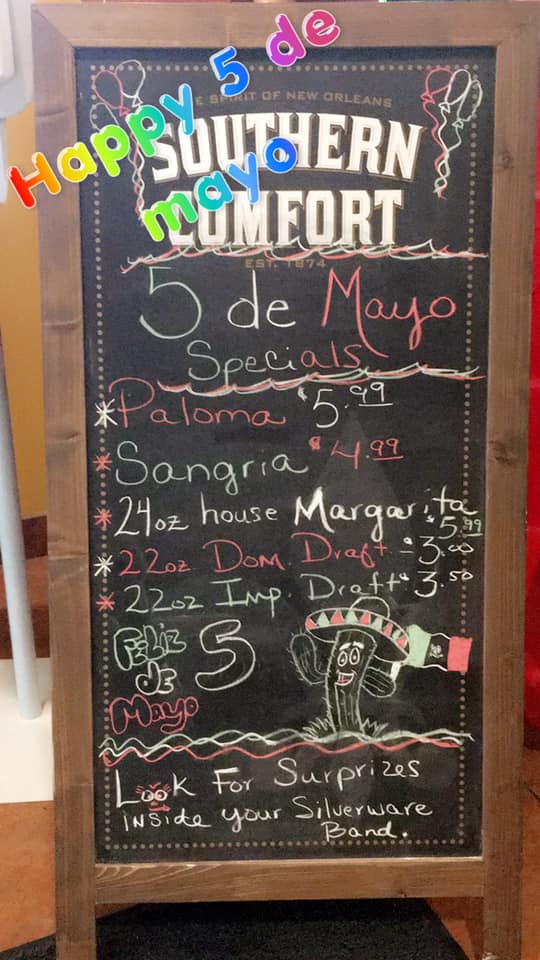 Happy 5 de
mayo
E SPIRIT OF NEW ORLEANS
SOUTHERN
COMFORT
EST. 1874
5 de Mayo
Specials
*Paloma $5.99
*Sangria $4.99
*24oz house Margarita
$5.99
*22oz Dom. Draft - $3.00
*22oz Imp. Draft $3.50
FELIZ 5
DE
Mayo
Look For Surprizes
inside your Silverware
Band.